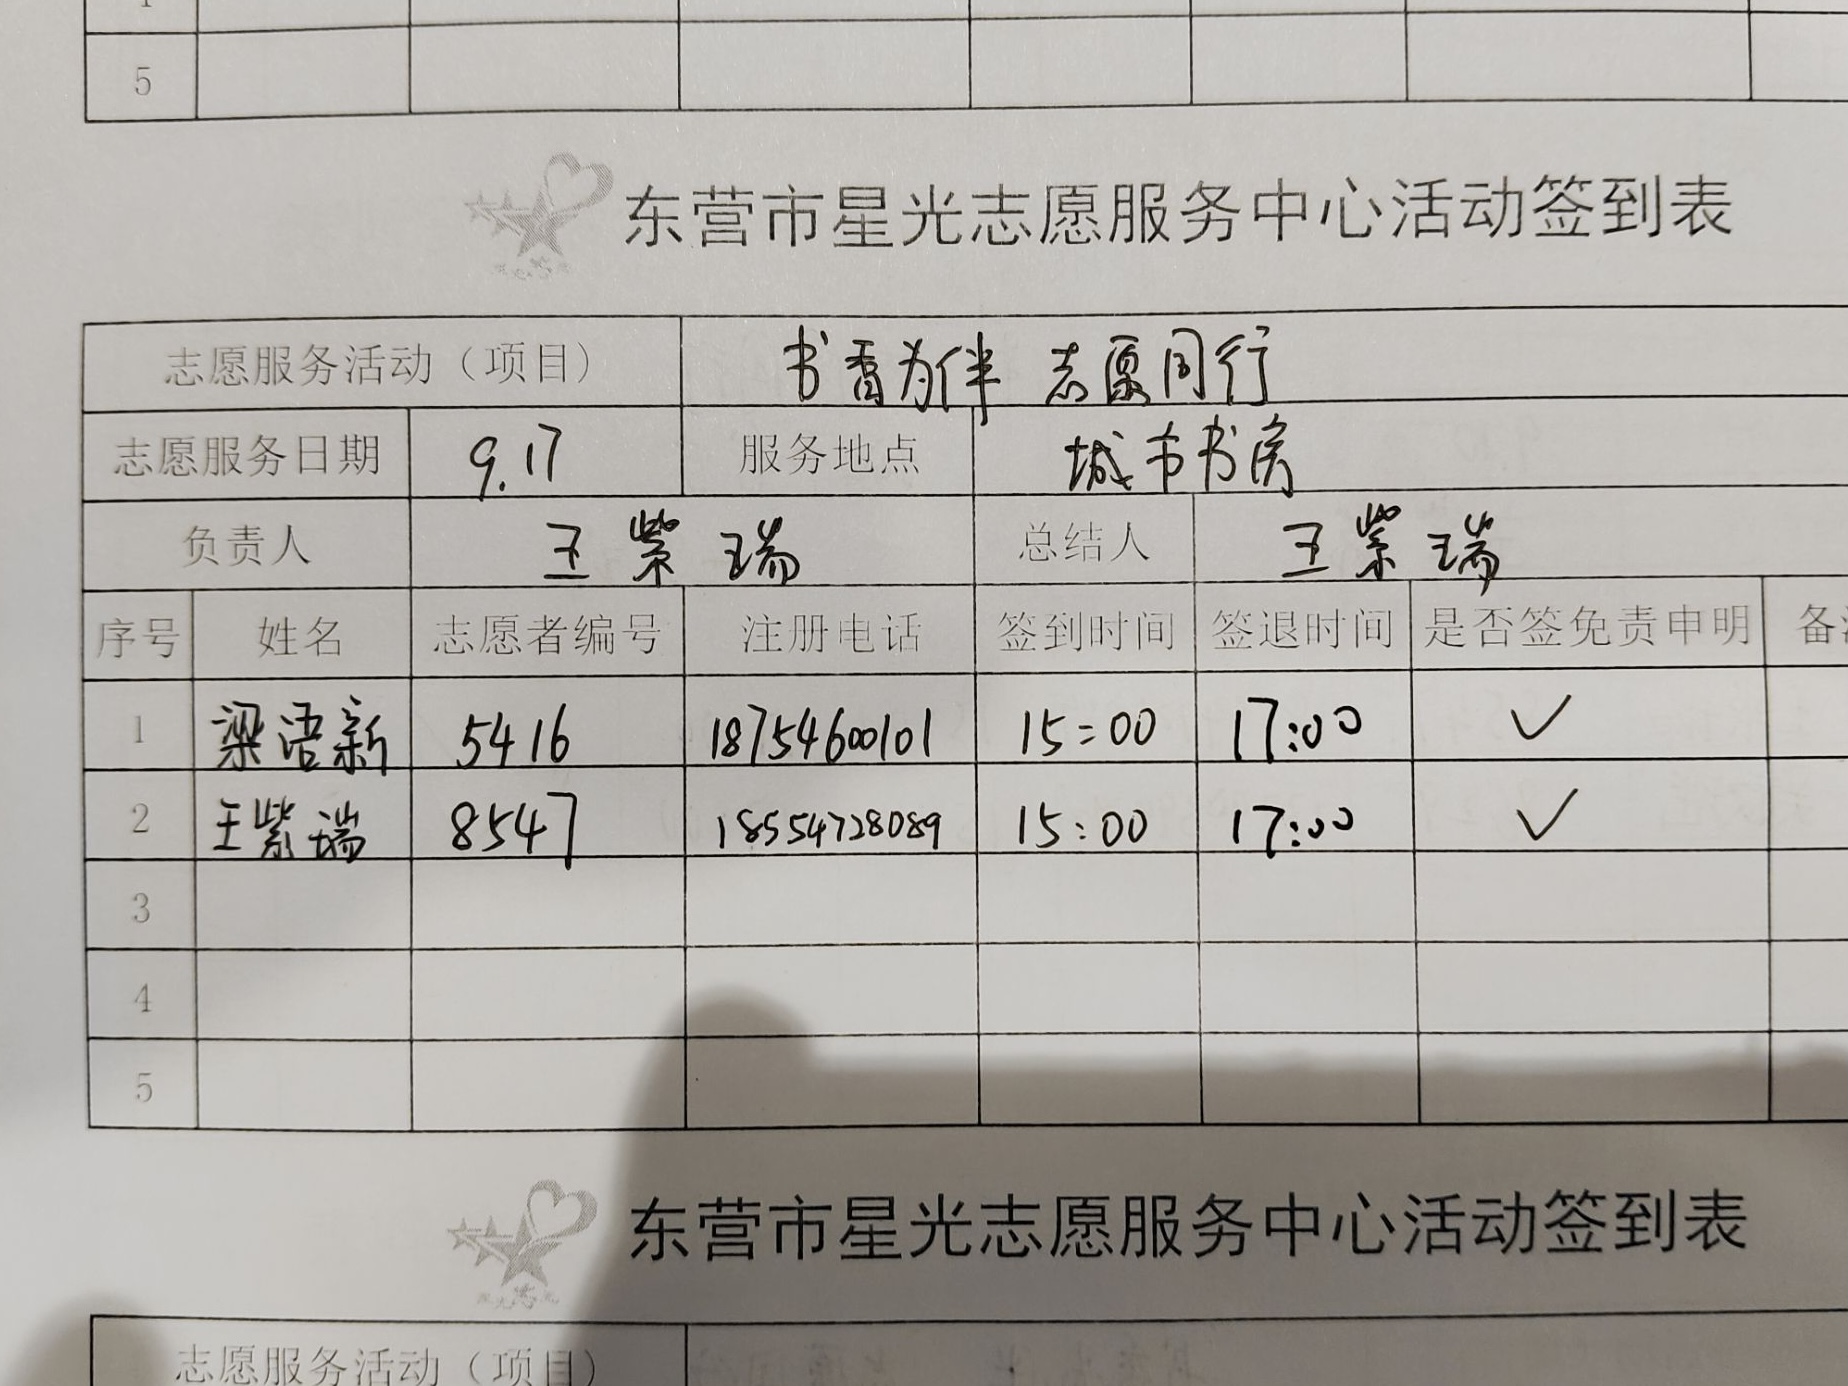 5
东营市星光志愿服务中心活动签到表
志愿服务活动（项目） 书香为伴 志愿同行
志愿服务日期 9.17 服务地点 城市书房
负责人 王紫瑞 总结人 王紫瑞
序号 姓名 志愿者编号 注册电话 签到时间 签退时间 是否签免责申明 备
1 梁语新 5416 18754600101 15:00 17:00 ✓
2 王紫瑞 8547 18554728089 15:00 17:00 ✓
3
4
5
东营市星光志愿服务中心活动签到表
志愿服务活动（项目）